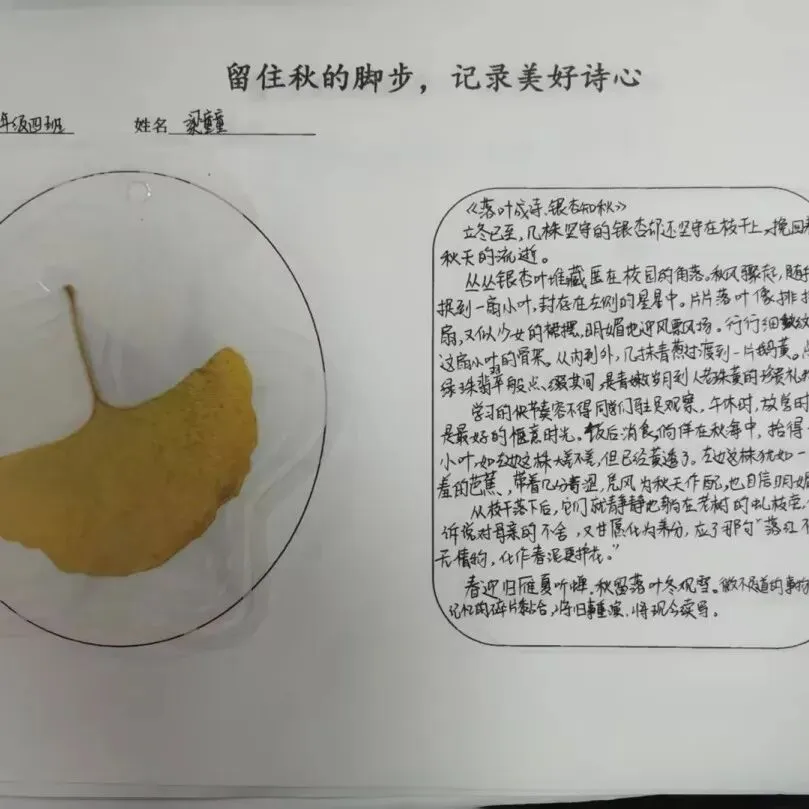 留住秋的脚步，记录美好诗心
年级四班 姓名 梁童童
《落叶成诗、银杏知秋》
立冬已至，几株坚守的银杏却还坚守在枝干上，挽回着
秋天的流逝。
丛丛银杏叶堆藏匿在校园的角落。秋风骤起，随手
捉到一扇小叶，封存在左侧的星星中。片片落叶像排排
扇，又似少女的裙摆，明媚地迎风飘扬。行行细数纹
这扇小叶的骨架。从内到外，几抹青葱过渡到一片鹅黄。
绿珠翡翠般点缀其间，是青嫩岁月到人老珠黄的珍贵礼
学习的快节奏容不得同学们驻足观察，午休时，放学时
是最好的惬意时光。饭后消食，徜徉在秋海中，拾得一
小叶，如左边这株大差不差，但已经黄透了。左边这株犹如一
羞的芭蕉，带着几分青涩，凭风为秋天作配，也自信明媚
从枝干落下后，它们就静静地躺在老树的虬枝旁，
诉说对母亲的不舍，又甘愿化为养分，应了那句“落红不
无情物，化作春泥更护花。”
春迎归雁夏听蝉，秋留落叶冬观雪。微不足道的事物
记忆的碎片黏合，将旧事重演，将现今续写。